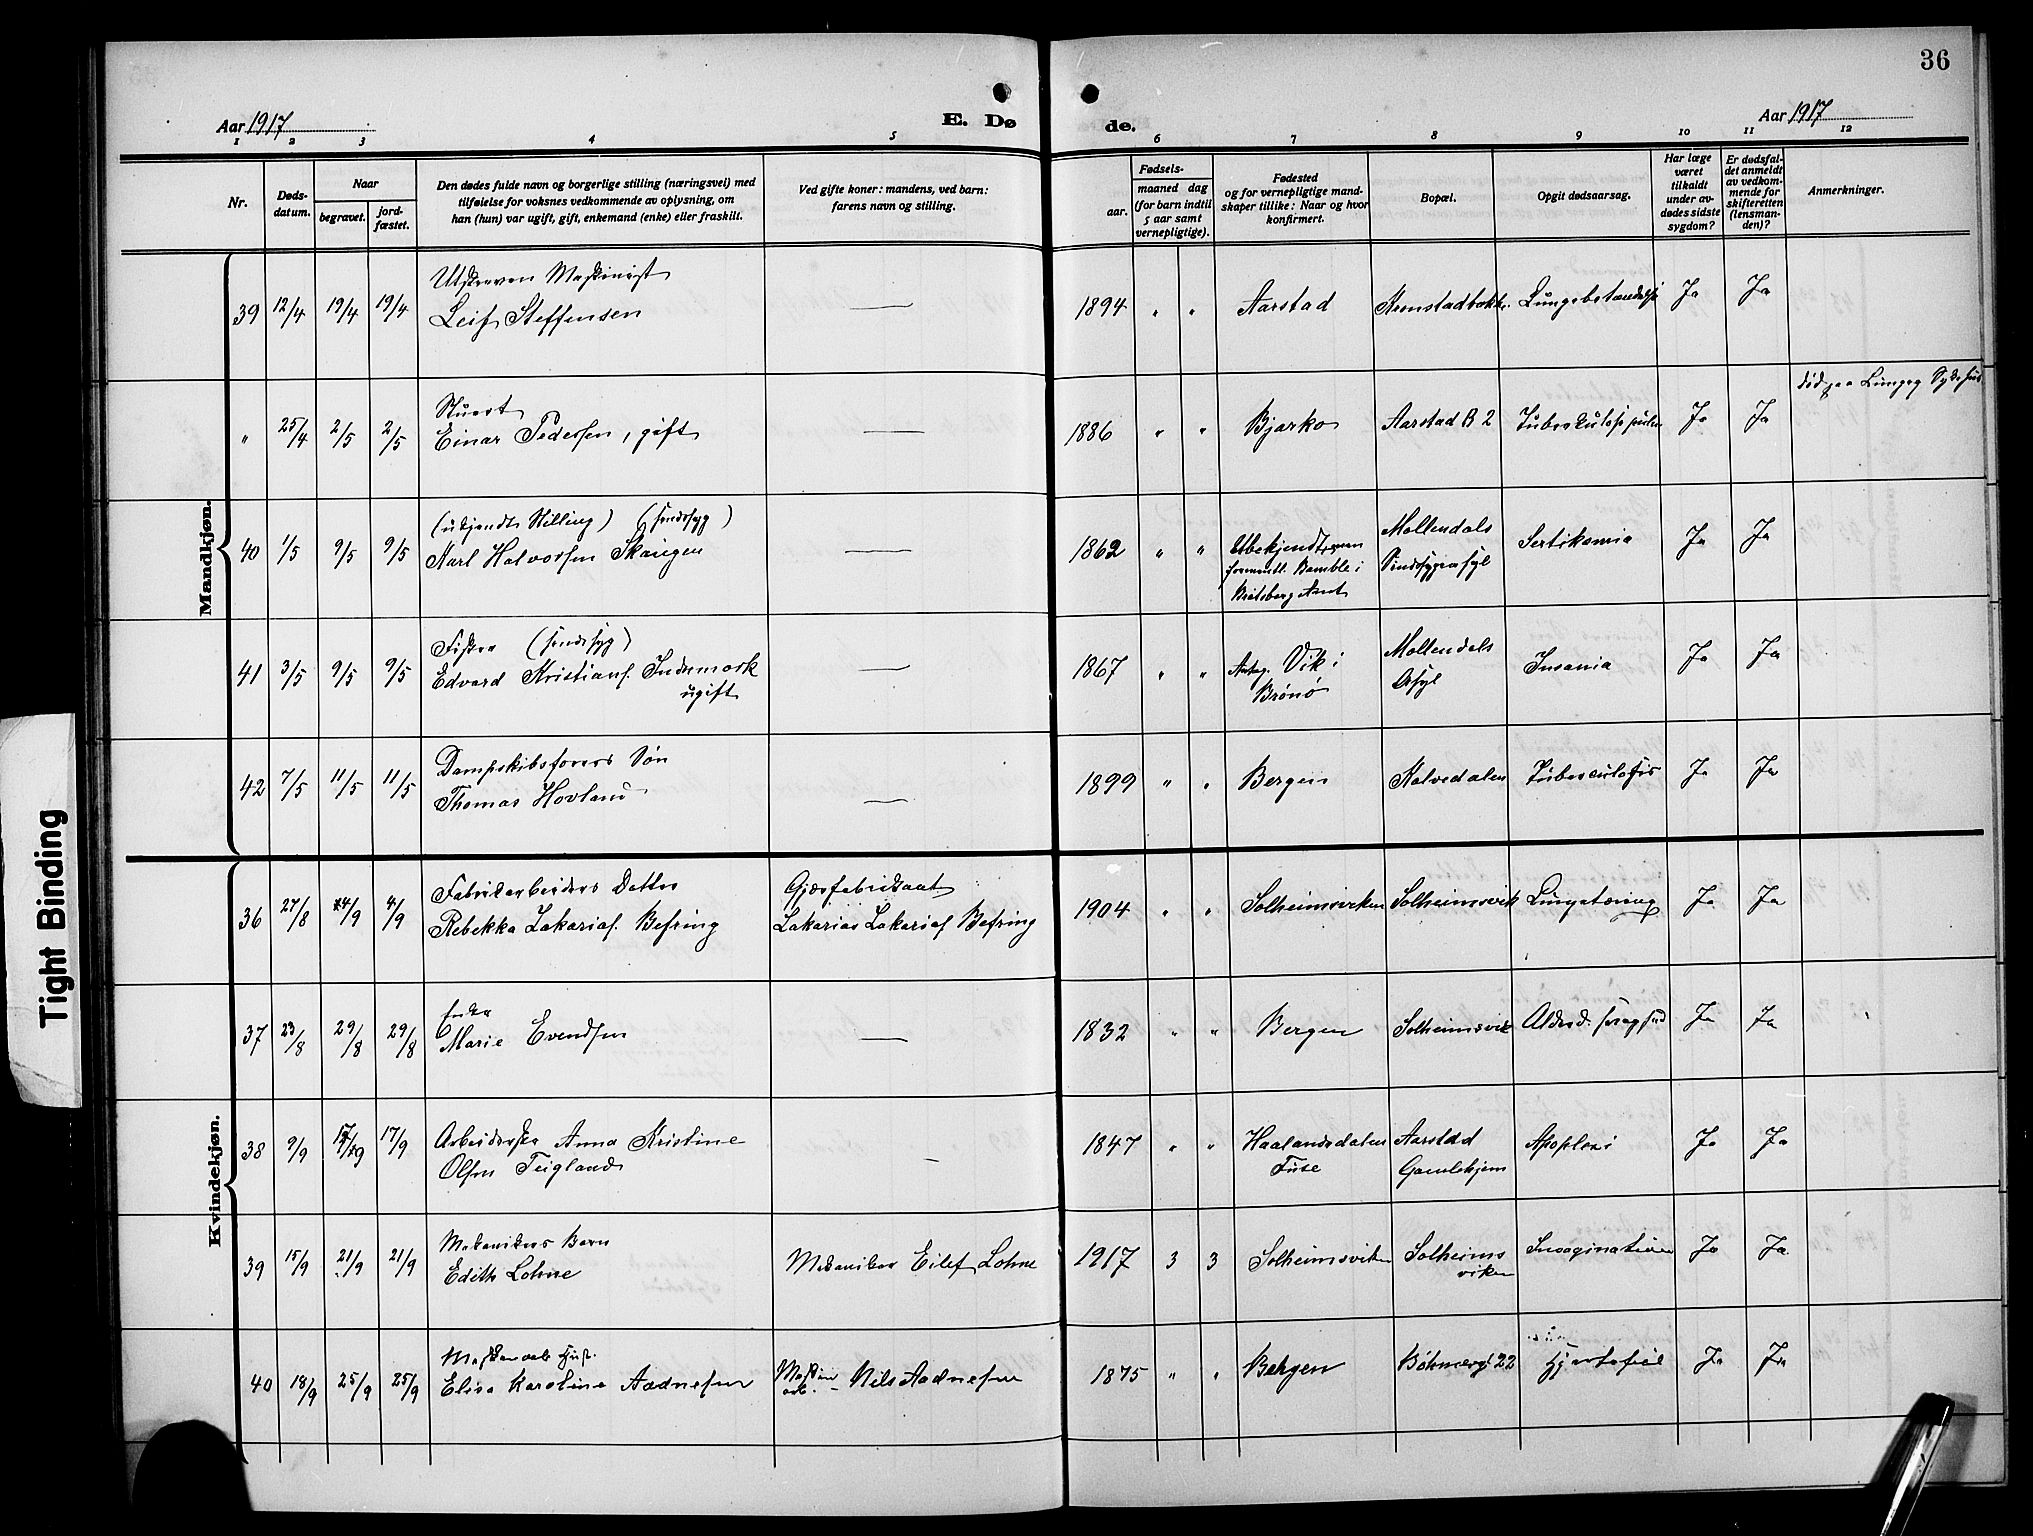 36
Aar 1917
E. Dø
de.
Aar 1917
1 2 3 4 5 6 7 8 9 10 11 12
Nr.
Døds-
datum.
Naar
begravet.
jord-
fæstet.
Den dødes fulde navn og borgerlige stilling (næringsvei) med
tilføielse for voksnes vedkommende av oplysning, om
han (hun) var ugift, gift, enkemand (enke) eller fraskilt.
Ved gifte koner: mandens, ved barn:
farens navn og stilling.
Fødsels-
aar.
maaned dag
(for barn indtil
5 aar samt
vernepligtige).
Fødested
og for vernepligtige mand-
skaper tillike: Naar og hvor
konfirmert.
Bopæl.
Opgit dødsaarsag.
Har læge
været
tilkaldt
under av-
dødes sidste
sygdom?
Er dødsfal-
det anmeldt
av vedkom-
mende for
skifteretten
(lensman-
den)?
Anmerkninger.
Mandkjøn.
Utskreven Maskinist
39 12/4 19/4 19/4 Leif Steffensen — 1894 " " Aarstad Kronstadbakke Lungebetændelse Ja Ja
død paa Lungeg Sykehus
Stuert
" 25/4 2/5 2/5 Einar Pedersen, gift — 1886 " " Bjarko Aarstad B 2 Ja Ja
(ukjendt Stilling) (sindssyg)
40 1/5 9/5 9/5 Karl Halvorsen Skaugen — 1862 " " Ubekjendt, men
forment. Bamble i
Bratsberg Amt
Mollendals
Sindssygeasyl
Ja Ja
Fisker (sindssyg)
41 3/5 9/5 9/5 Edvard Kristians. Indermark
ugift
— 1867 " " Antag. Vik i
Brønø
Mollendals
Asyl
Insania Ja Ja
Dampskibsførers Søn
42 7/5 11/5 11/5 Thomas Hovland — 1899 " " Bergen Kalvedalen Tuberculosis Ja Ja
Kvindekjøn.
Fabrikarbeiders Datter
36 27/8 4/9 4/9 Rebekka Zakarias. Befring
Gjærfabrikant
Zakarias Zakarias Befring
1904 " " Solheimsviken Solheimsvik Lungetæring Ja Ja
Enke
37 23/8 29/8 29/8 Marie Evendsen — 1832 " " Bergen Solheimsvik Ja Ja
38 9/9 17/9 17/9 Arbeiderske Anna Kristine
Olsen Teigland
— 1847 " " Haalandsdalen
Fuse
Aarstad
Gamlehjem
Apoplexi Ja Ja
Mekanikers Barn
39 15/9 21/9 21/9 Edith Lohne Mekaniker Eilef Lohne 1917 3 3 Solheimsviken Solheims
viken
Invagination Ja Ja
Maskinarb. Hust.
40 18/9 25/9 25/9 Elisa Karoline Aadnesen
Maskin
arb. - Nils Aadnesen
1875 " " Bergen Bøhmergt 22 Hjertefeil Ja Ja
Tight Binding